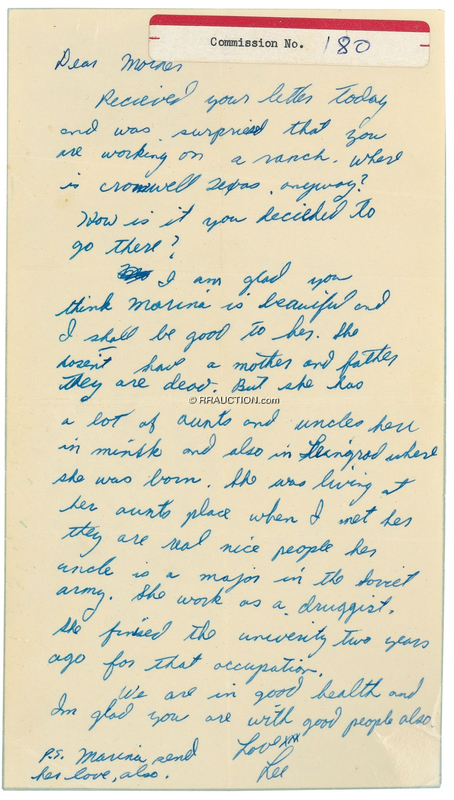 Commission No. 180
Dear Mother
Recieved your letter today
and was surpried that you
are working on a ranch. Where
is cromwell Texas, anyway?
How is it you decieded to
go there?
I am glad you
think Marina is beauiful and
I shall be good to her. She
dosen't have a mother and father
they are dead. But she has
© RRAUCTION.com
a lot of aunts and uncles here
in minsk and also in where
she was born. She was living at
her aunts place when I met her
they are real nice people her
uncle is a major in the Soviet
army. She work as a druggist.
She finised the univerity two years
ago for that occupation.
We are in good health and
Im glad you are with good people also.
Love xxx
Lee
P.S. Marina send
her love, also.